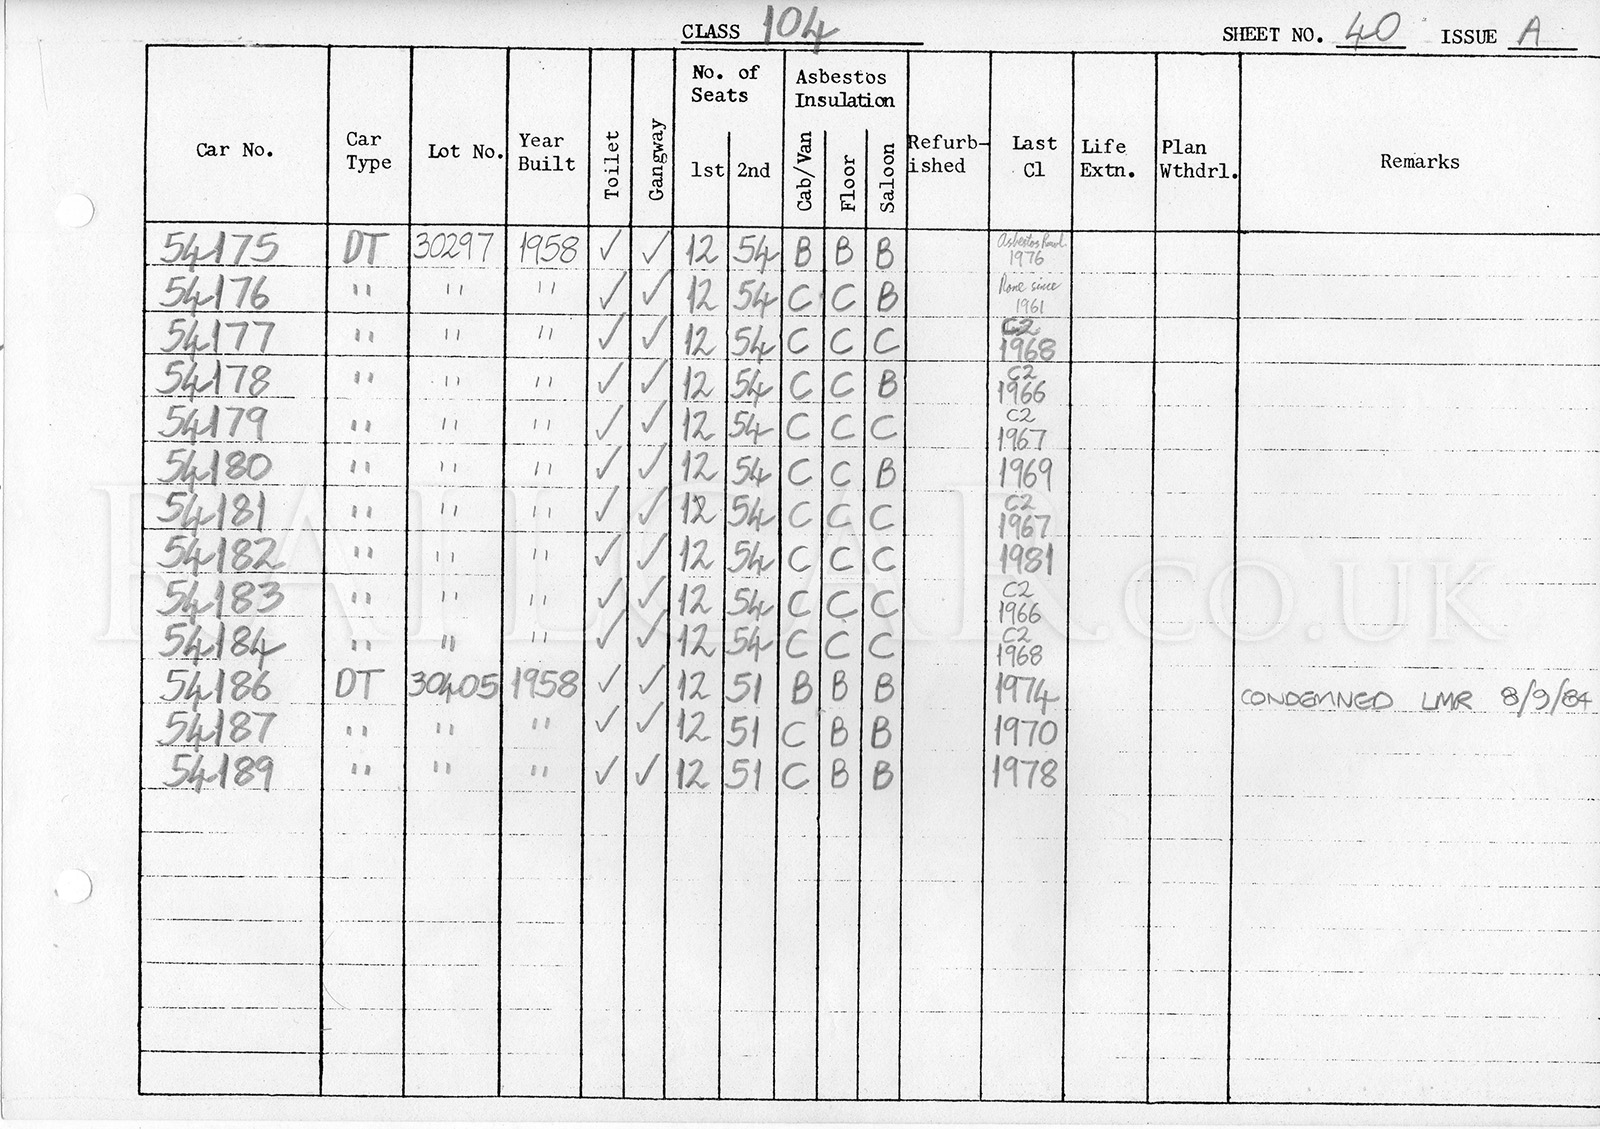 CLASS 104 SHEET NO. 40 ISSUE A
Car No. Car Type Lot No. Year Built Toilet Gangway No. of Seats 1st 2nd Asbestos Insulation Cab/Van Floor Saloon Refurb-ished Last Cl Life Extn. Plan Wthdrl. Remarks
54175 DT 30297 1958 ✓ ✓ 12 54 B B B Asbestos 1976
54176 " " " ✓ ✓ 12 54 C C B None since 1961
54177 " " " ✓ ✓ 12 54 C C C C2 1968
54178 " " " ✓ ✓ 12 54 C C B C2 1966
54179 " " " ✓ ✓ 12 54 C C C C2 1967
54180 " " " ✓ ✓ 12 54 C C B 1969
54181 " " " ✓ ✓ 12 54 C C C C2 1967
54182 " " " ✓ ✓ 12 54 C C C 1981
54183 " " " ✓ ✓ 12 54 C C C C2 1966
54184 " " " ✓ ✓ 12 54 C C C C2 1968
54186 DT 30405 1958 ✓ ✓ 12 51 B B B 1974 CONDEMNED LMR 8/9/84
54187 " " " ✓ ✓ 12 51 C B B 1970
54189 " " " ✓ ✓ 12 51 C B B 1978
RAILCAR.CO.UK